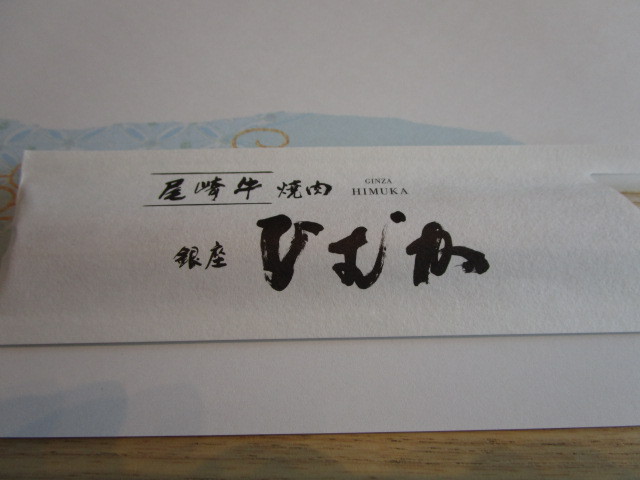 尾崎牛 焼肉
GINZA
HIMUKA
銀座 ひむか